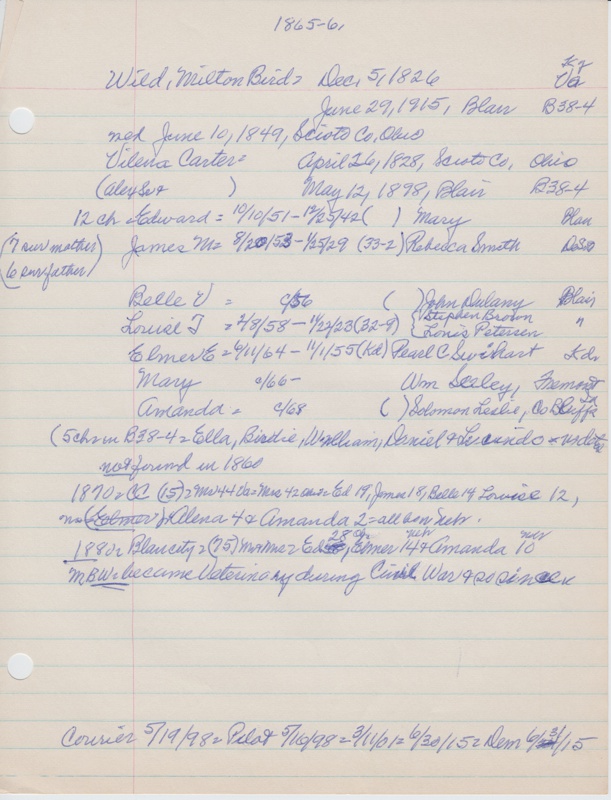 1865-6,
Wild, Milton Bird = Dec, 5, 1826 Ky Va
June 29, 1915, Blair B38-4
med June 10, 1849, Scioto Co, Ohio
Vilena Carter = April 26, 1828, Scioto Co, Ohio
(alex Sr & ) May 12, 1898, Blair B38-4
12 ch = Edward = 10/10/51 - 12/25/42 ( ) Mary Blair
(7 sur mother) James M = 8/20/53 - 1/25/29 (33-2) Rebecca Smith
6 sur father)
Belle V = c/56 ( ) John Dulany Blair
Louise T = 2/8/58 - 11/22/23 (32-9) {Stephen Brown "
{Louis Petersen
Elmer E = 6/11/64 - 11/1/55 (Kd) Pearl C Swihart Kdr
Mary c/66 - Wm Seeley, Fremont
Amanda = c/68 ( ) Solomon Leslie, Co Bluffs Ia
(5 ch in B38-4 = Ella, Birdie, William, Daniel & Lucindo
not found in 1860
1870 = CC (15) = Mr 44 Va = Mrs 42 Ed 19, James 18, Belle 14 Louise 12,
no (Elmer) Alena 4 & Amanda 2 = all born Nebr.
1880 = Blair city = (75) Mr & Mrs = Ed 28 ch, Elmer 14 nebr & Amanda 10 nebr
MBW = became Veterinary during Civil War & so since
Courier 5/19/98 = Pilot 5/10/98 = 3/11/01 = 6/30/15 = Dem 6/31/15